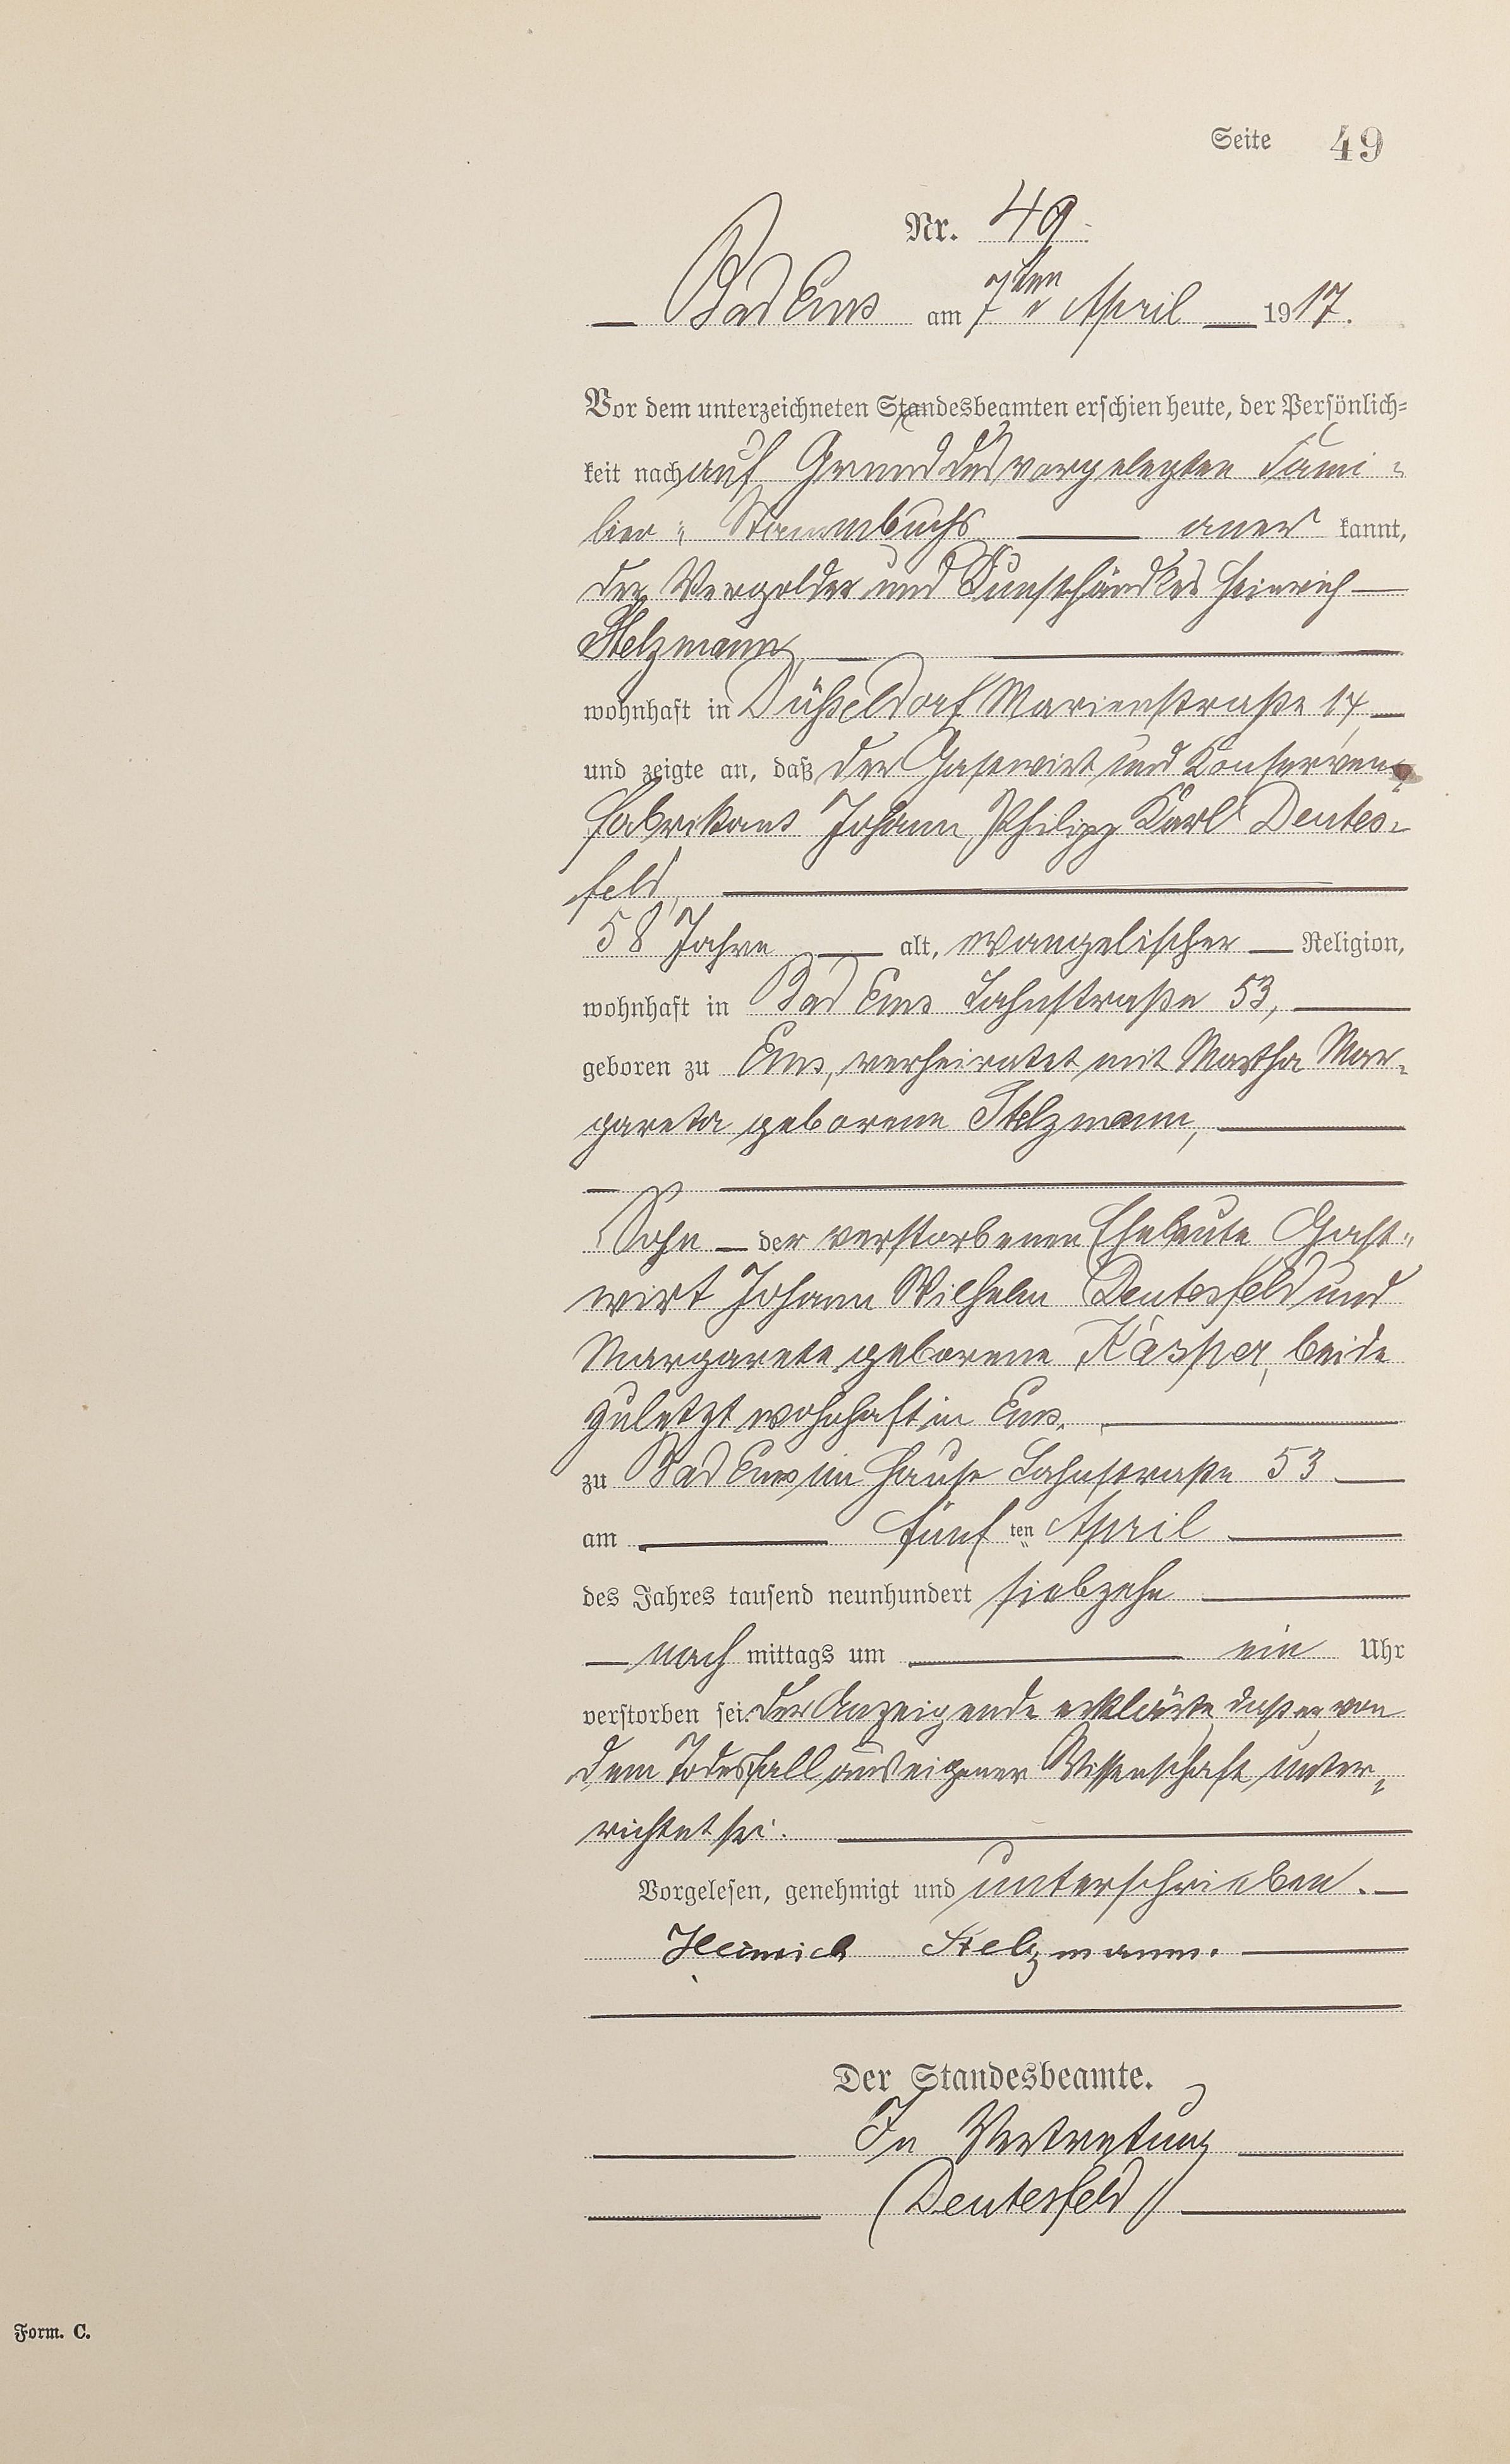 Seite 49
Nr. 49.
Bad Ems am 7ten April 1917.
Vor dem unterzeichneten Standesbeamten erschien heute, der Persönlich-
keit nach auf Grund des vorgelegten Fami-
lien-Stammbuchs aner kannt,
der Vergolder und Kunsthändler Heinrich
Stelzmann,
wohnhaft in Düsseldorf Marienstraße 14
und zeigte an, daß der Gastwirt und Konserven-
fabrikant Johann Philipp Karl Deutes-
feld,
58 Jahre alt, evangelischer Religion,
wohnhaft in Bad Ems Lahnstraße 53,
geboren zu Ems, verheiratet mit Martha Mar-
gareta geborene Stelzmann,
Sohn der verstorbenen Eheleute Gast-
wirt Johann Wilhelm Deutesfeld und
Margarete geborene Kasper, beide
zuletzt wohnhaft in Ems.
zu Bad Ems im Hause Lahnstraße 53
am fünf ten April
des Jahres tausend neunhundert siebzehn
nach mittags um ein Uhr
verstorben sei. Der Anzeigende erklärte, daß er von
dem Todesfall aus eigener Wissenschaft unter-
richtet sei.
Vorgelesen, genehmigt und unterschrieben.
Heinrich Stelzmann.
Der Standesbeamte.
In Vertretung
Deutesfeld
Form. C.